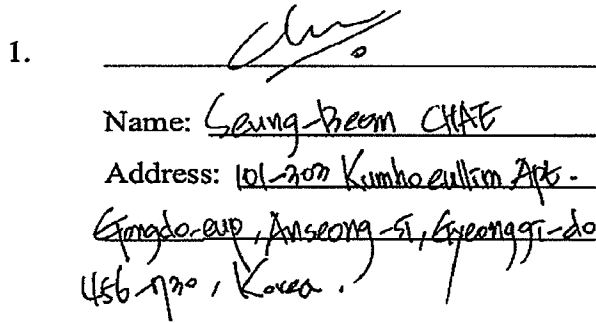 1.
Name: Seung-Beom CHAE
Address: 101-303 Kumhoeullim Apt.
Gongdo-eup, Anseong-si, Gyeonggi-do
Korea.